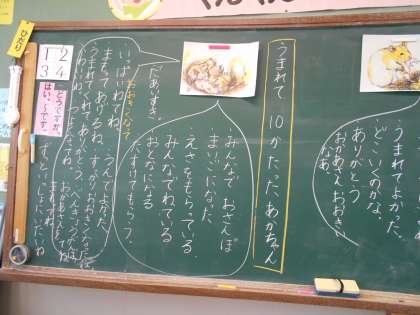 うまれてよかった、
どこいくのかな。
ありがとう
おかあさんおおきい
なあ。
うまれて 10かたった、あかちゃん
・みんなで おさんぽ
・まいごになった。
・えさをもらっている。
・みんなでねている
・おとなになる
・たすけてもらう。
だあいすき。
おおきくなって
いっぱいねてね。
うんでよかった。
まもってあげるね。
うまれてくれてありがとう。
かわいいね。
ずっといっしょにいたいね
ひかり
1 2
3 4
どうですか。
はい、~です。